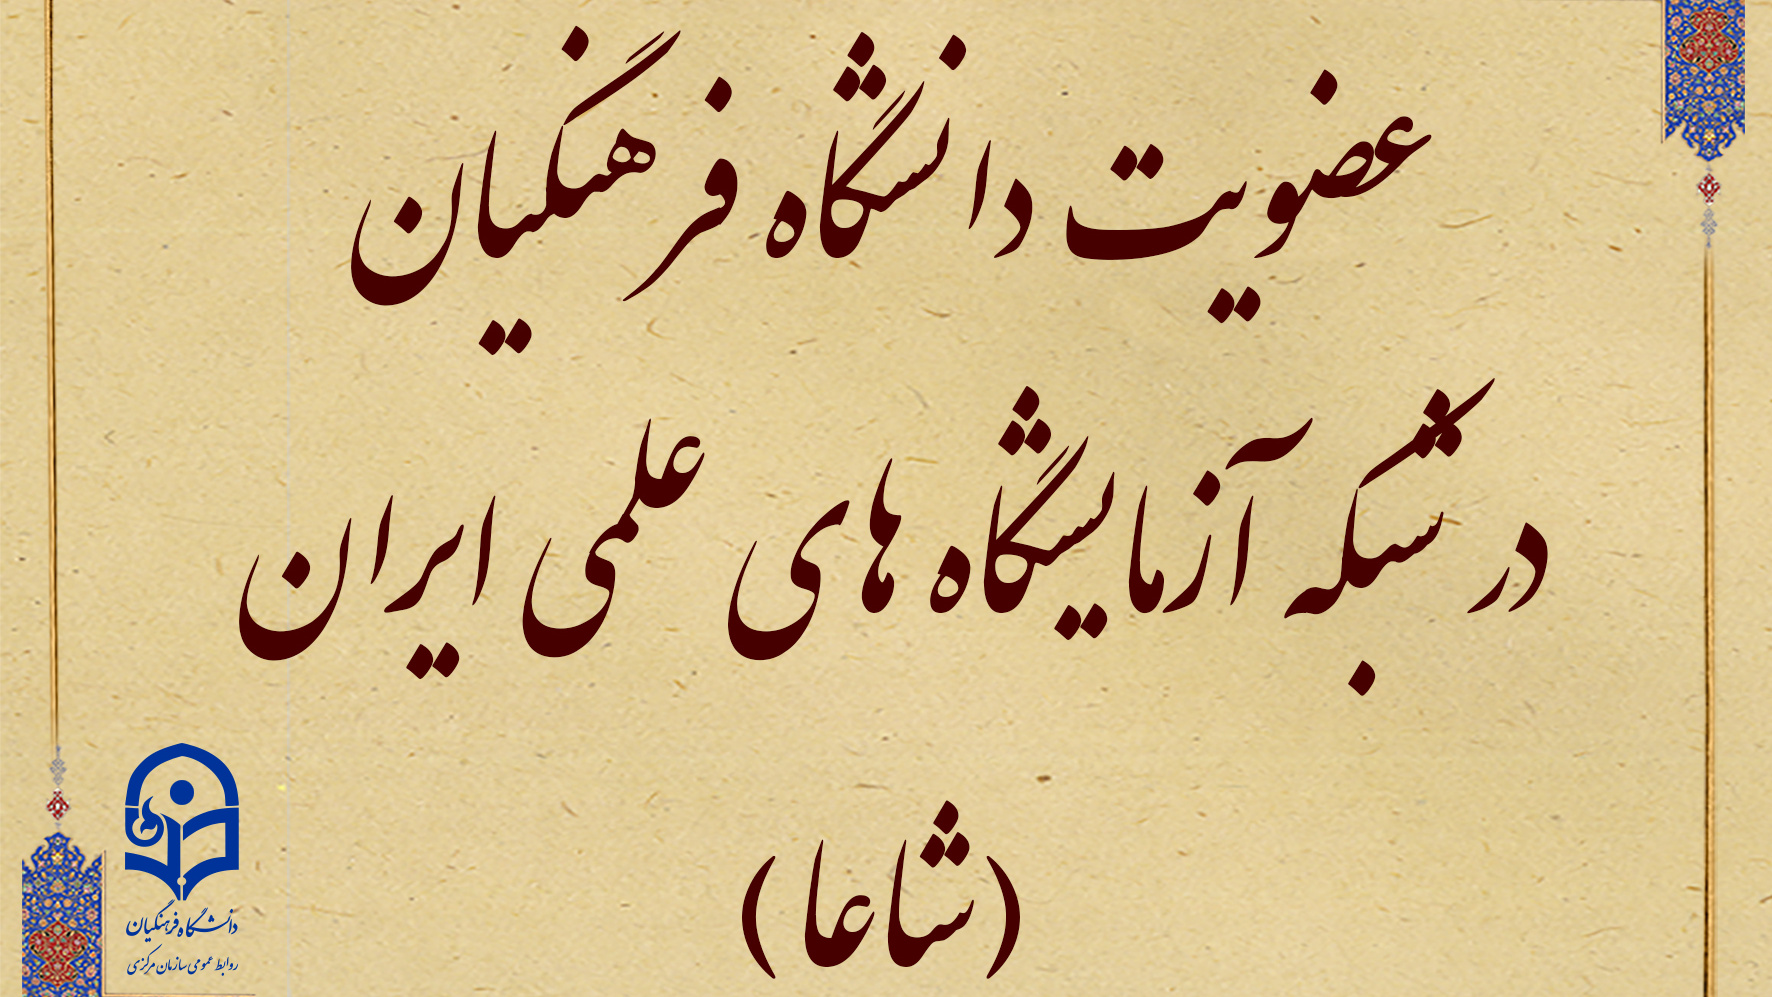 عضویت دانشگاه فرهنگیان
در شبکه آزمایشگاه های علمی ایران
(شاعا)
دانشگاه فرهنگیان
روابط عمومی سازمان مرکزی